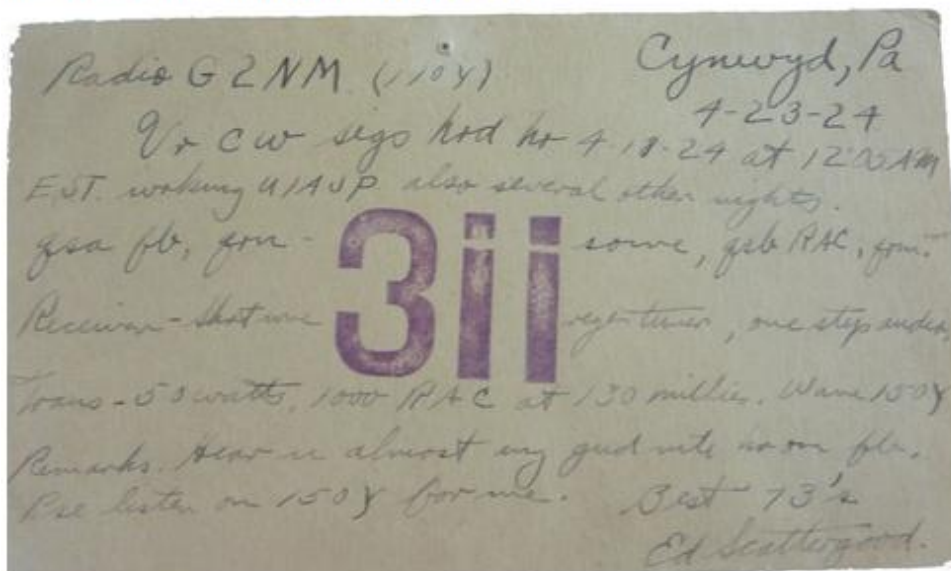 Radio G 2 NM (110 Y) Cynwyd, Pa
4-23-24
Vr CW sigs hrd hr 4-18-24 at 12:05 AM
E.S.T. woking U1AUP also several other nights.
qsa fb, qrn - some, qsb RAC, qrm.
3ii
Receiver - Short wave regen tuner, one step audio,
Trans - 50 watts, 1000 RAC at 130 millies. Wave 150 Y
Remarks. Hear u almost any gud nite hr om fb.
Pse listen on 150 Y for me. Best 73's
Ed Scattergood.